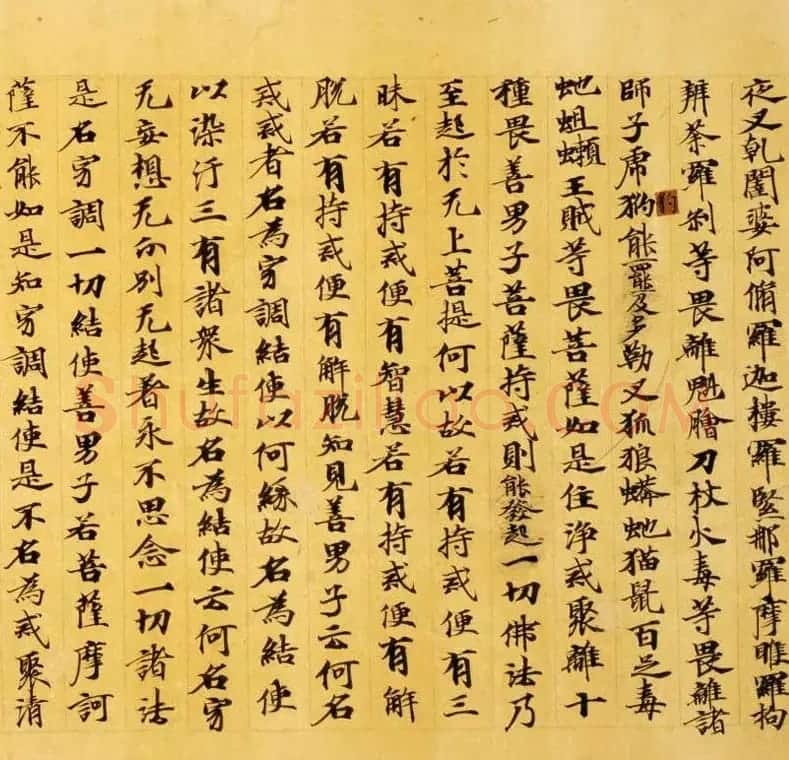 夜叉乹闥婆阿脩羅迦樓羅堅那羅摩睺羅拘
辨荼羅刹等畏離魁膾刀杖水毒等畏離諸
師子虎豹能羆及多勒叉狐狼蟒虵猫鼠百足毒
虵蛆王賊等畏菩薩如是住淨戒聚離十
種畏善男子菩薩持戒則能發起一切佛法乃
至起於无上菩提何以故若有持戒便有三
昧若有持戒便有智慧若有持戒便有解
脫若有持戒便有解脫知見善男子云何名
戒戒者名為穷調結使以何緣故名為結使
以染汙三有諸衆生故名為結使云何名穷
无妄想无分別无起著永不思念一切諸法
是名穷調一切結使善男子若菩薩摩訶
薩不能如是知穷調結使是不名為戒聚清